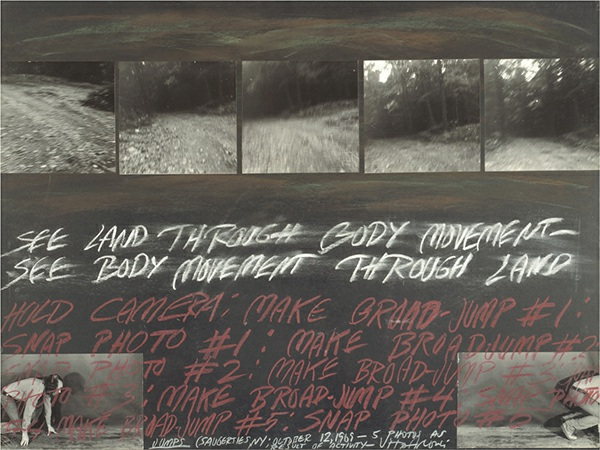 SEE LAND THROUGH BODY MOVEMENT–
SEE BODY MOVEMENT THROUGH LAND
HOLD CAMERA; MAKE BROAD-JUMP #1:
SNAP PHOTO #1: MAKE BROADJUMP #2
PHOTO #2: MAKE BROAD-JUMP
PHOTO #3: MAKE BROAD-JUMP #4 SNAP PHOTO
MAKE BROAD-JUMP #5: SNAP PHOTO
JUMPS (SAUGERTIES NY; OCTOBER 12, 1969 – 5 PHOTOS AS
RESULT OF ACTIVITY–